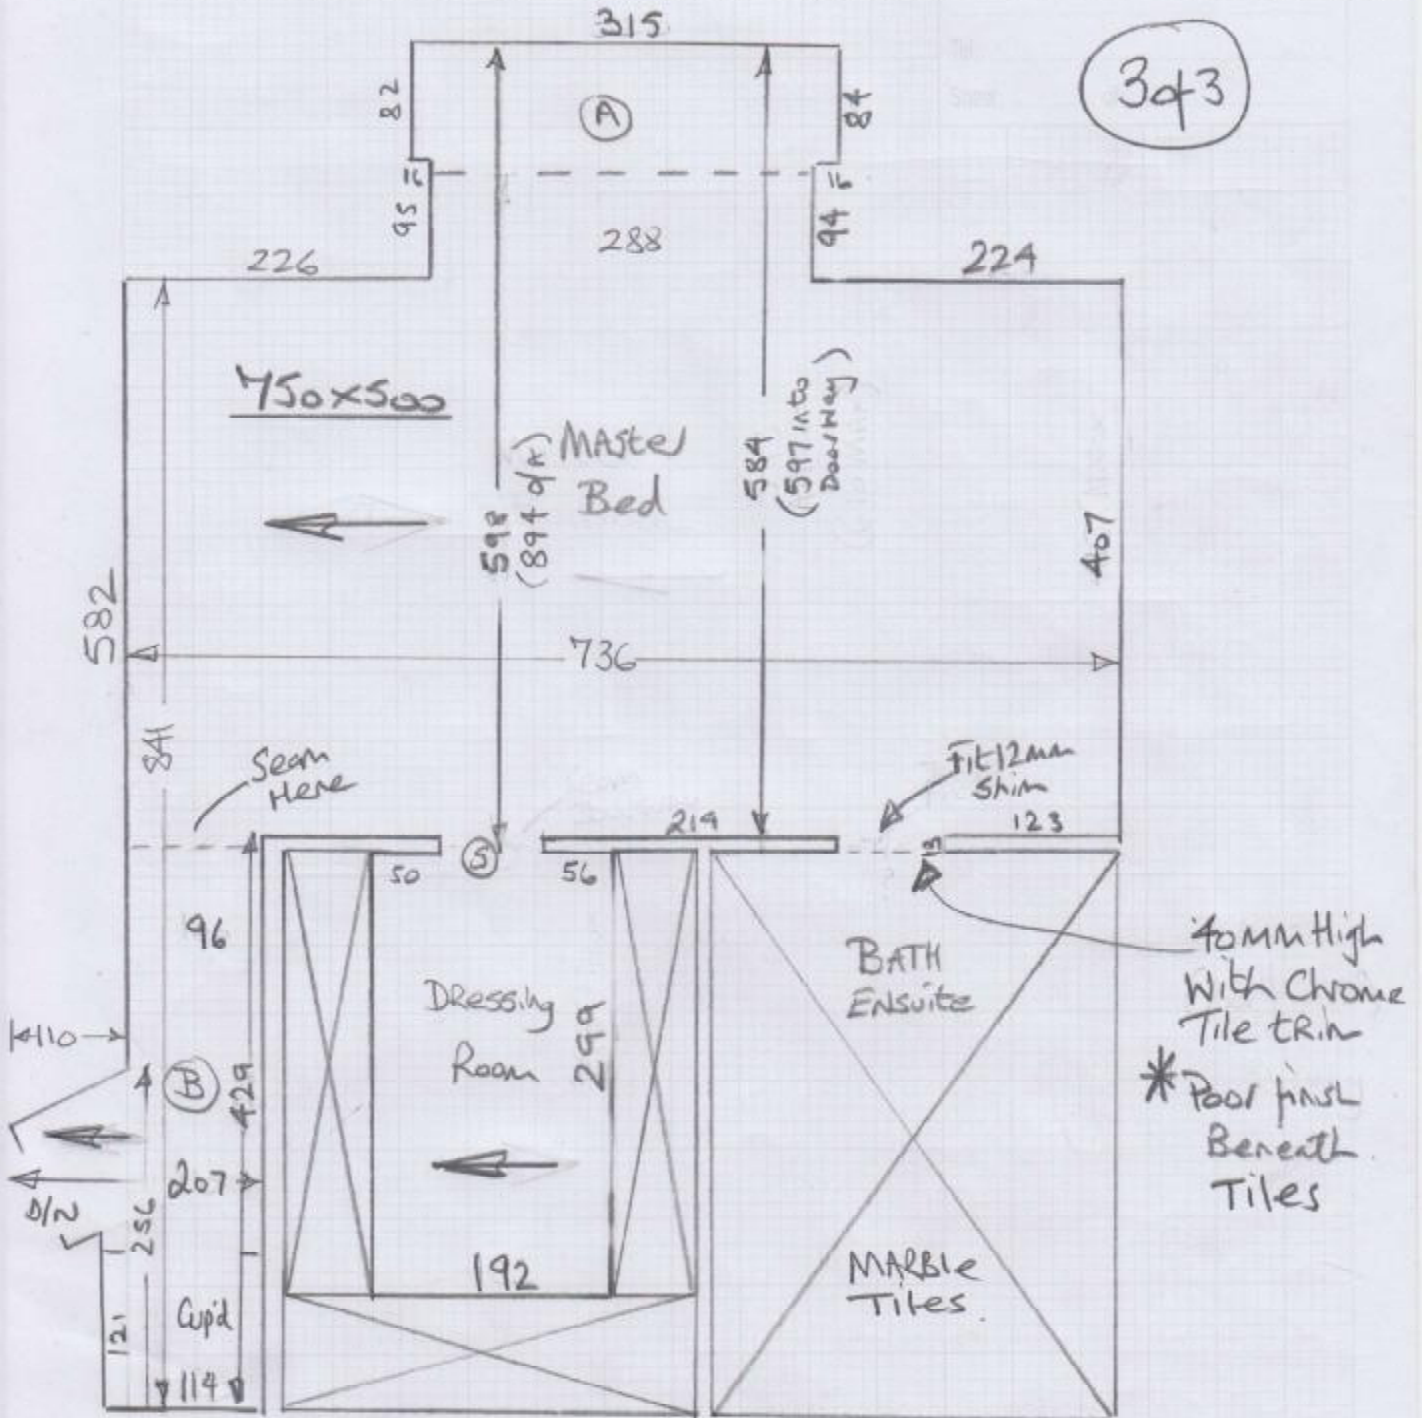 315
3of3
82
A
84
16
16
95
288
94
226
224
750x500
Master
Bed
598
(894 o/A)
584
(597 into
Doorway)
407
582
736
841
Seam
Here
Fit 12mm
Shim
219
123
13
50
S
56
96
Dressing
Room
299
BATH
ENSUITE
40mm High
With Chrome
Tile tRim
* Poor finish
Beneath
Tiles
110
B
429
207
D/N
256
192
MARBLE
Tiles
Cup'd
121
114